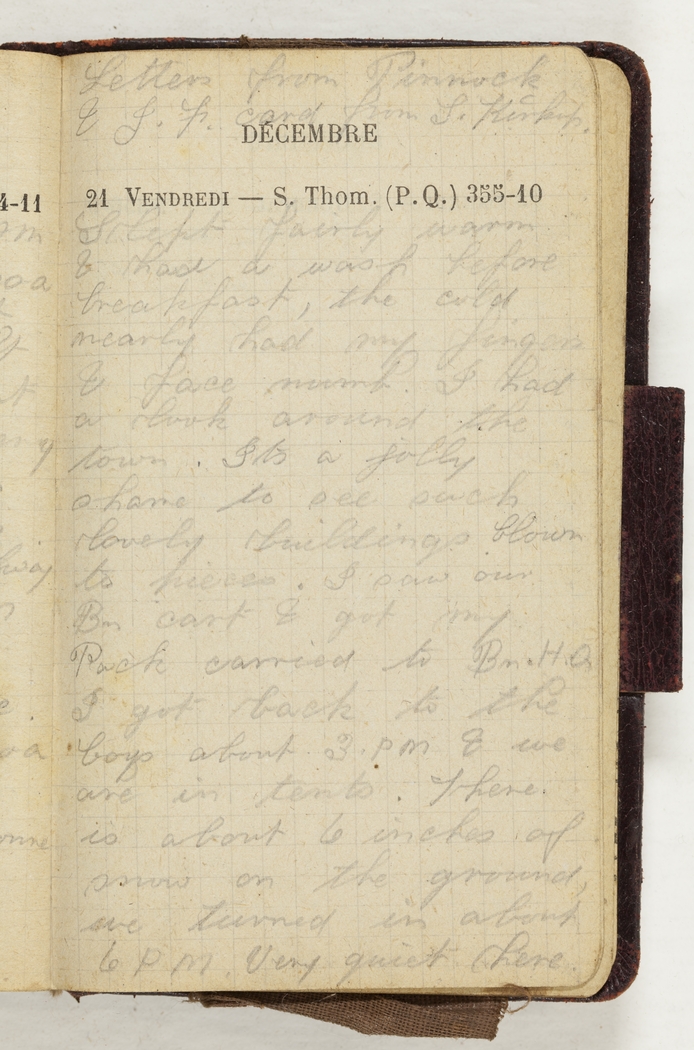 Letters from Pinnock
& J. F. card from S. Kirkip.
DÉCEMBRE
21 VENDREDI — S. Thom. (P.Q.) 355-10
Slept fairly warm
& had a wash before
breakfast, the cold
nearly had my fingers
& face numb. I had
a look around the
town. Its a jolly
shame to see such
lovely buildings blown
to pieces. I saw our
Bn cart & got my
Pack carried to Bn.H.Q
I got back to the
boys about 3.pm & we
are in tents. There.
is about 6 inches of
snow on the ground,
we turned in about
6 P.M. Very quiet here.